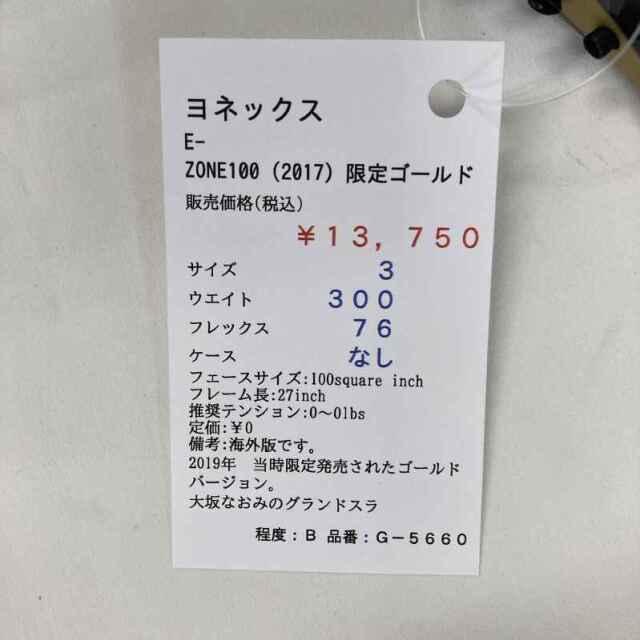 ヨネックス
E-
ZONE100 (2017) 限定ゴールド
販売価格(税込)
¥13,750
サイズ 3
ウエイト 300
フレックス 76
ケース なし
フェースサイズ:100square inch
フレーム長:27inch
推奨テンション:0〜0lbs
定価:¥0
備考:海外版です。
2019年 当時限定発売されたゴールド
バージョン。
大坂なおみのグランドスラ
程度:B 品番:G-5660